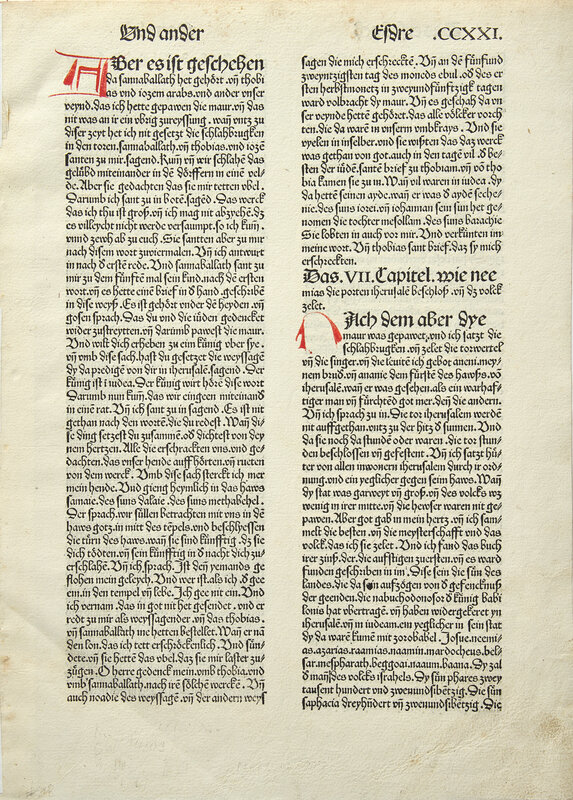 Und ander
Esdre .CCXXI.
Aber es ist geschehen
da sannaballath het gehört. vñ thobi
as vnd iozem arabs. vnd ander vnser
veynd. das ich hette gepawen die maur. vñ das
nit was an ir ein vbrig zureyssung. wañ vntz zu
diser zeyt het ich nit gesetzt die schlahbrugken
in den toren. sannaballath. vñ thobias. vnd iozē
santen zu mir. sagend. Kum̄ vñ wir schlahē das
gelübd miteinander in dē dörffern in einē vel⸗
de. Aber sie gedachten das sie mir tetten vbel.
Darumb ich sant zu in botē. sagēd. Das werck
das ich thu ist groß. vñ ich mag nit abzyehē. dz
es villeycht nicht werde versaumpt. so ich kum̄.
vnnd zewh ab zu euch. Sie santten aber zu mir
nach disem wort zwiermalen. Vñ ich antwurt
in nach d̄ erstē rede. Vnd sannaballath sant zu
mir zu dem fünftē mal sein kind. nach dē ersten
wort. vñ es hette eine brief in d̄ hand. geschribē
in dise weyß. Es ist gehört vnder dē heyden. vñ
gosen sprach. Das du vnd die iüden gedencket
wider zustreytten. vñ darumb pawest die maur.
Vnd wilt dich erheben zu eim künig vber sye.
vñ vmb dise sach. hast du gesetzet die weyssagē
dy da predigē von dir in iherusalē. sagend. Der
künig ist i iudea. Der künig wirt hörē dise wort
Darumb nun kum̄. das wir eingeen miteinand
in einē rat. Vñ ich sant zu in sagend. Es ist nit
gethan nach den wortē. die du redest. Wañ di⸗
se ding setzest du zusammē. vd̄ dichtest von dey
nem hertzen. Alle die erschrackten vns. vnd ge⸗
dachten. das vnser hende auffhörten. vñ rueten
von dem werck. Vmb dise sach sterckt ich mer
mein hende. Vnd gieng heymlich in das haws
samaie. des suns dalaie des suns methabehel.
Der sprach. wir süllen betrachten mit vns in dē
haws gotz. in mitt des tēpels. vnd beschlyessen
die türn des haws. wañ sie sind künfftig. dz sie
dich tödten. vñ sein künfftig in d̄ nacht dich zu⸗
erschlahē. Vñ ich sprach. Ist den yemands ge
flohen mein geleych. Vnd wer ist als ich. d̄ gee
ein. in den tempel vñ lebe. Ich gee nit ein. Vnd
ich vernam. das in got nit het gesendet. vnd er
redt zu mir als weyssagender. vñ das thobias.
vñ sannaballath me hetten bestellet. Wañ er nā
den lon. das ich tett erschöckenlich. Vnd sün⸗
dete. vñ sie hettē das vbel. daz sie mir laster zu⸗
zügen. O herre gedenck mein. vmb thobia. vnd
vmb sannaballath. nach irē sölchē werckē. Vñ
auch noadie des weyssagē. vñ der andern weys
sagen die mich erschrecktē. Vñ an dē fünfund
zweyntzigsten tag des moneds ebul. od̄ des er
sten herbstmonetz in zweyundfünfftzigk tagen
ward volbracht dy maur. Vñ es geschah da vn
ser veynde hettē gehöret. das alle völcker vorch
ten. die da warē in vnserm vmbkrays. Vnd sie
vyelen in inselber. vnd sie wißten das daz werck
was gethan von got. auch in den tagē vil. d̄ be⸗
sten der iüdē. santē brief zu thobiam. vñ vō tho
bia kamen sie zu in. Wañ vil waren in iudea. dy
da hettē seinen ayde. wañ er was d̄ aydē seche⸗
nie. des suns iorei. vñ iohannan sein sun het ge⸗
nomen die tochter mesollam. des suns baachie
Sie lobten in auch vor mir. Vnd verkünten im
meine wort. Vñ thobias sant brief. daz sy mich
erschreckten.
Das .VII. Capitel. wie nee
mias die porten iherusalē beschloß. vñ dz volck
zelet.
Nach dem aber dye
maur was gepawet. vnd ich satzt die
schlahbrugken. vñ zelet die torwertel
vñ die singer. vñ die leuitē ich gebot aneni. mey⸗
nem brud. vñ ananie dem fürstē des hawßs. vō
iherusalē. wañ er was gesehen. als ein warhaf⸗
tiger man vñ fürchtēd got mer. deñ die andern.
Vñ ich sprach zu in. Die tor iherusalem werdē
nit auffgethan. vntz zu der hitz d̄ sunnen. Vnd
da sie noch da stundē oder waren. die tor stun⸗
den beschlossen vñ gefestent. Vñ ich satzt hü⸗
ter von allen inwonern iherusalem durch ir ord⸗
nung. vnd ein yeglicher gegen sein haws. Wañ
dy stat was garweyt vñ groß. vñ des volcks wz
wenig in irer mitte. vñ die hewser waren nit ge⸗
pawen. Aber got gab in mein hertz. vñ ich sam⸗
melt die besten. vñ die meysterschafft vnd das
volck. das ich sie zelet. Vnd ich fand das buch
irer zinß. der. die auffstigen zuersten. vñ es ward
funden geschriben in im. Dise sein die sün des
landes. die da sein auffzōgen von d̄ gefencknuß
der geenden. die nabuchodonosor d̄ künig babi
lonis hat vbertragē. vñ haben widergekeret yn
iherusalē. vñ in iudeam. ein yeglicher in sein stat
dy da warē kumē mit zorobabel. Josue. neemi⸗
as. azarias. raamias. naamin. mardocheus. bel⸗
sar. mespharath. beggoai. naaum. baana. Dy zal
d̄ mañ des volcks israhels. Dy sün phares zwey
tausent hundert vnd zwenundsibētzig. Die sün
saphacia dreyhūdert vñ zwenundsibētzig. Die